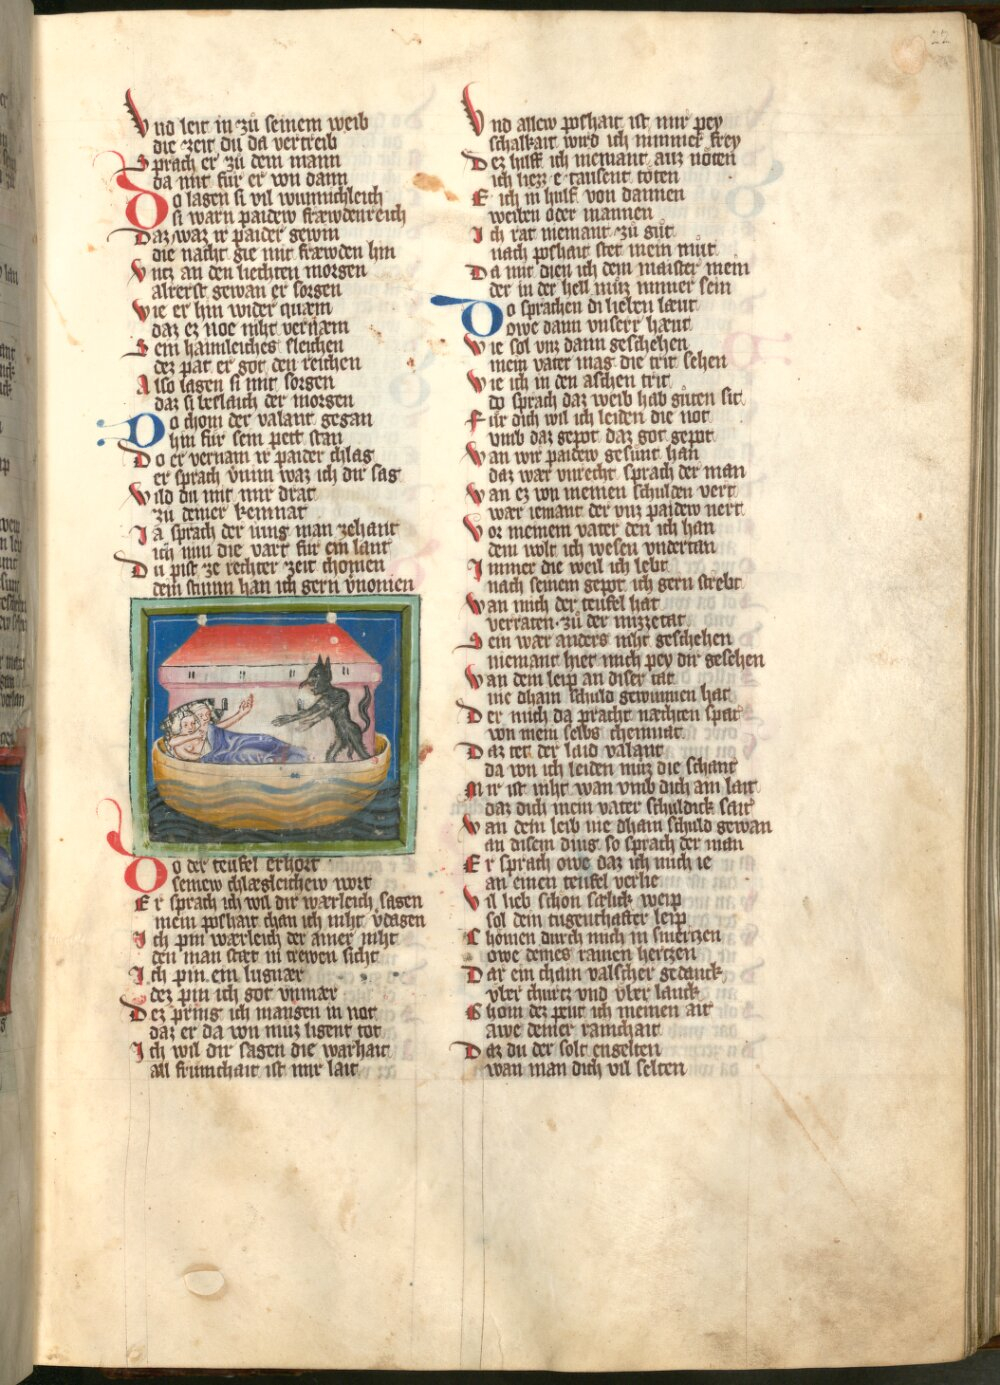 22
Vnd leit in zů seinem weib
die zeit du da vertreib
Sprach er zů dem mann
da mit fůr er von dann
Do lagen si vil wunnichleich
si warn paidew fræwdenreich
Daz waz ir paider gewin
die nacht gie mit fræwden hin
Vntz an den liechten morgen
alrerst gewan er sorgen
Wie er hin wider quæm
daz ez noe niht vernæm
Sein haimleiches sleichen
dez pat er got den reichen
Also lagen si mit sorgen
daz si beslaich der morgen
Do chom der valant gegan
hin für sein pett stan
Do er vernam ir paider chlag
er sprach v̄nim waz ich dir sag
Wild du mit mir drat
zů deiner kemnat
Ja sprach der iung man zehant
ich nim die vart für ein lant
Du pist ze rechter zeit chomen
dein stimm han ich gern v̄nomen
Do der teufel erhort
seinew chlægleichew wort
Er sprach ich wil dir wærleich sagen
mein poshait chan ich niht v̄dagen
Ich pin wærleich der ainer niht
den man stæt in trewen sicht
Ich pin ein lugnær
dez pin ich got vnmær
Dez pring ich mangen in not
daz er da von muz ligent tot
Ich wil dir sagen die warhait
all frümchait ist mir lait
Vnd allew poshait ist mir pey
schalkait wird ich nimmer frey
Dez hilff ich niemant auz nöten
ich liezz e tausent töten
E ich in hulff von dannen
weiben oder mannen
Ich rat niemant zů gůt
nach poshait stet mein můt
Da mit dien ich dem maister mein
der in der hell můz immer sein
Do sprachen di lieben læut
owe dann vnserr hæut
Wie sol vnz dann geschehen
mein vater mag die trit sehen
Wie ich in den aschen trit
do sprach daz weib hab gůten sit
Für dich wil ich leiden die not
vmb daz gepot daz got gepot
Wan wir paidew gesunt han
daz wær vnrecht sprach der man
Wan ez von meinen schulden vert
wær iemant der vnz paidew nert
Vor meinem vater den ich han
dem wolt ich wesen vndertan
Immer die weil ich lebt
nach seinem gepot ich gern strebt
Wan mich der teufel hat
verraten zů der mizzetat
Sein wær anders niht geschehen
niemant hiet mich pey dir gesehen
Wan dein leip an diser tat
nie dhain schuld gewunnen hat
Der mich da pracht næchten spat
von mein selbs chemnat
Daz tet der laid valant
da von ich leiden můz die schant
Mir ist niht wan vmb dich am lait
daz dich mein vater schuldick sait
Wan dein leib nie dhain schuld gewan
an disem ding so sprach der man
Er sprach owe daz ich mich ie
an einen teufel verlie
Vil lieb schon sælick weip
sol dein tugenthafter leip
Chömen durch mich in smertzen
owe deines rainen hertzen
Dar ein chain valscher gedanck
vber churtz vnd vber lanck
Chom dez peut ich meinen ait
awe deiner rainchait
Daz du der solt engelten
wan man dich vil selten